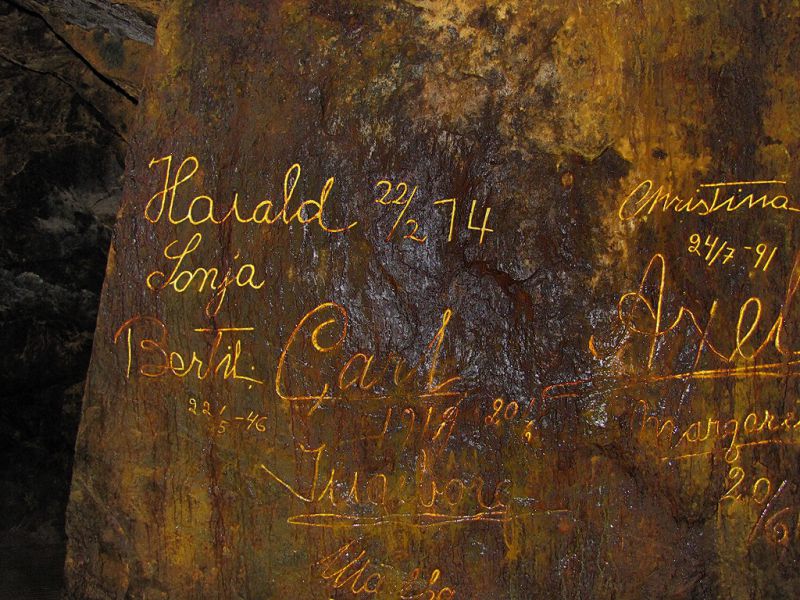 Harald 22/2 74
Sonja
Bertil.
22/5-46
Carl
1919 20/6
Ingeborg
Christina
24/7-91
Axel
Margare
20/6